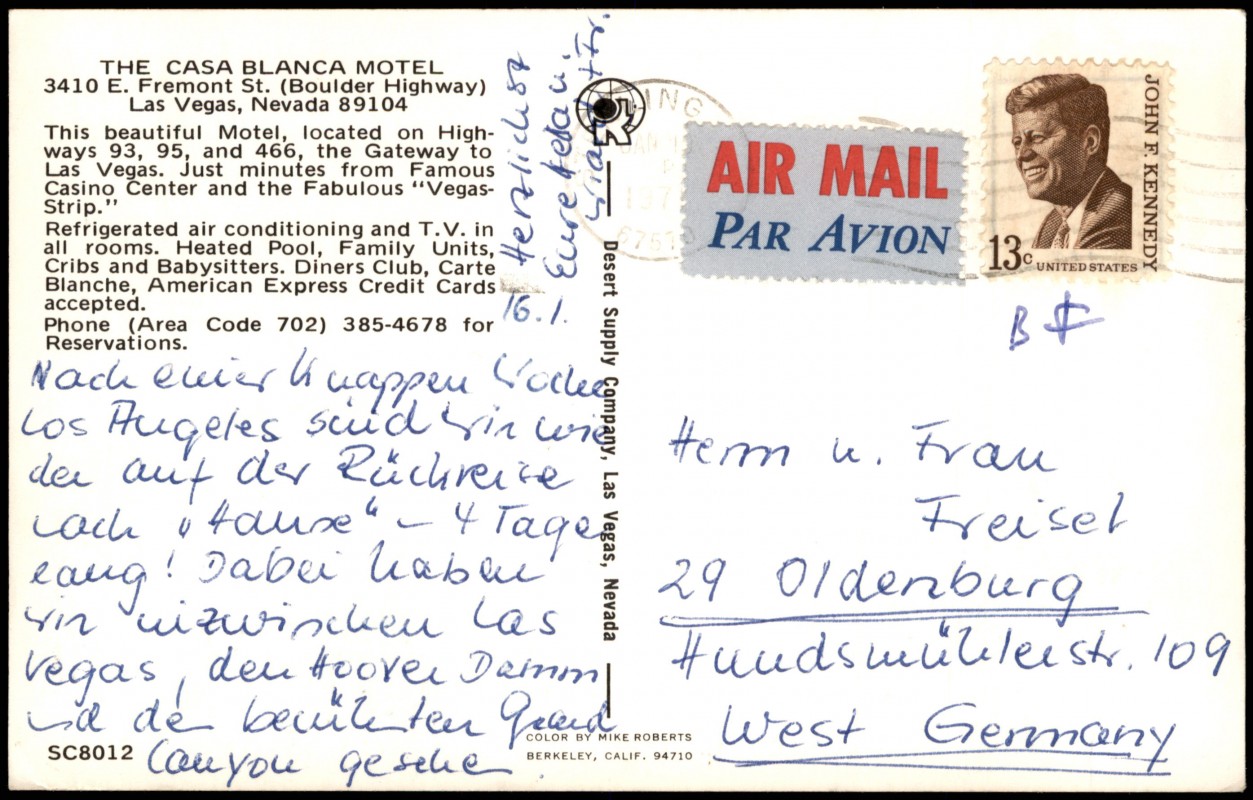 THE CASA BLANCA MOTEL
3410 E. Fremont St. (Boulder Highway)
Las Vegas, Nevada 89104
This beautiful Motel, located on High-
ways 93, 95, and 466, the Gateway to
Las Vegas. Just minutes from Famous
Casino Center and the Fabulous "Vegas-
Strip."
Refrigerated air conditioning and T.V. in
all rooms. Heated Pool, Family Units,
Cribs and Babysitters. Diners Club, Carte
Blanche, American Express Credit Cards
accepted.
Phone (Area Code 702) 385-4678 for
Reservations.
16.1.
Herzlichst
Eure
Nach einer knappen Woche
Los Angeles sind wir wie
der auf der Rückreise
nach „Hause“ – 4 Tage
lang! Dabei haben
wir inzwischen Las
Vegas, den Hoover Damm
und den berühmten Grand
Canyon gesehen.
SC8012
Desert Supply Company, Las Vegas, Nevada
COLOR BY MIKE ROBERTS
BERKELEY, CALIF. 94710
AIR MAIL
PAR AVION
JOHN F. KENNEDY
13c UNITED STATES
Herrn u. Frau
Freisel
29 Oldenburg
Hundsmühlerstr. 109
West Germany